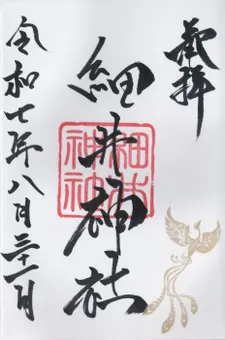 奉拝
細井神社
令和七年八月三十一日
細井
神社